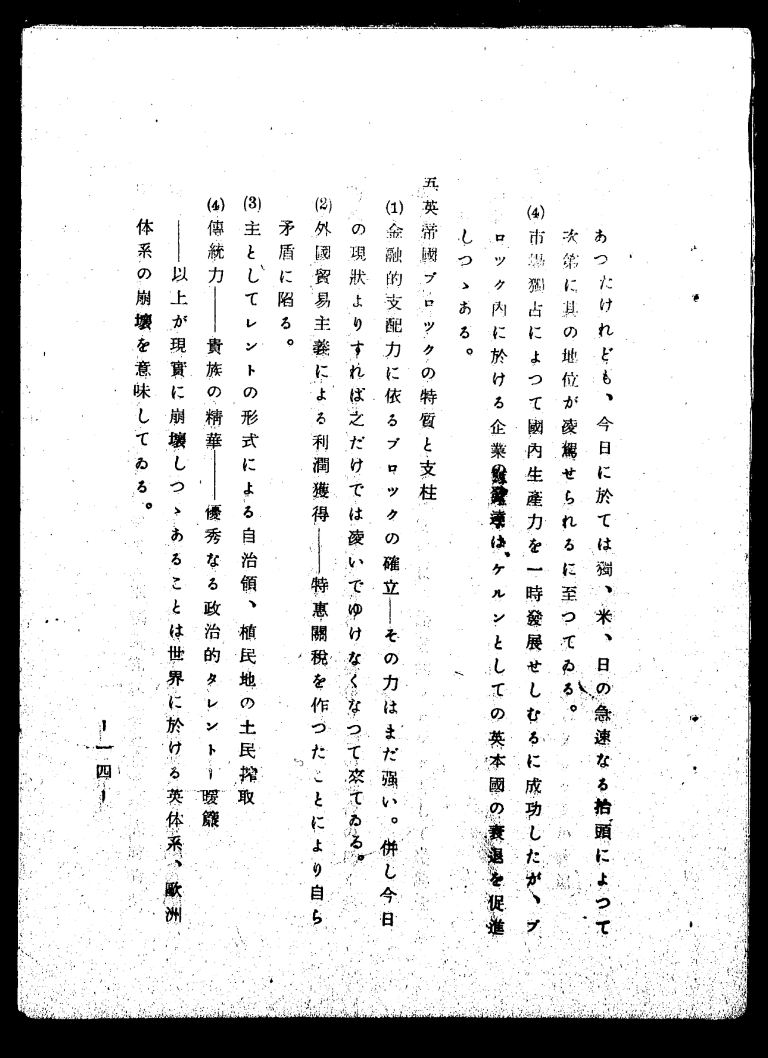 あつたけれども、今日に於ては獨、米、日の急速なる抬頭によつて
次第に其の地位が凌駕せられるに至つてゐる。
(4)市場獨占によつて國内生産力を一時發展せしむるに成功したが、ブ
ロツク内に於ける企業の發達は、ケルンとしての英本國の衰退を促進
しつゝある。
五英帝國ブロツクの特質と支柱
(1)金融的支配力に依るブロツクの確立―その力はまだ强い。併し今日
の現狀よりすれば之だけでは凌いでゆけなくなつて來てゐる。
(2)外國貿易主義による利潤獲得――特惠關稅を作つたことにより自ら
矛盾に陷る。
(3)主としてレントの形式による自治領、植民地の土民搾取
(4)傳統力――貴族の精華――優秀なる政治的タレント―曖簾
――以上が現實に崩壞しつゝあることは世界に於ける英体系、歐洲
体系の崩壞を意味してゐる。
―一四―